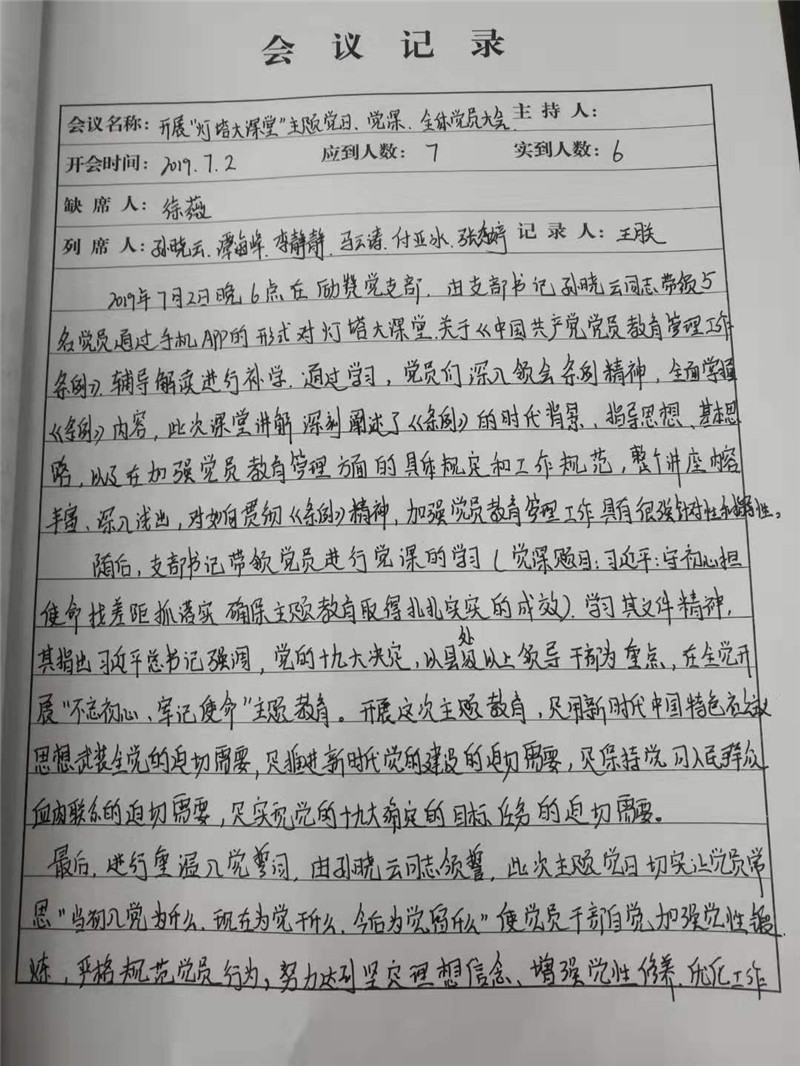 会议记录
会议名称：开展“灯塔大课堂”主题党日、党课、全体党员大会 主持人：
开会时间：2019.7.2 应到人数：7 实到人数：6
缺席人：徐薇
列席人：孙晓云、谭海峰、李静静、马云涛、付亚冰、张婷 记录人：王朕
2019年7月2日晚6点在励赞党支部，由支部书记孙晓云同志带领5
名党员通过手机APP的形式对灯塔大课堂关于《中国共产党党员教育管理工作
条例》辅导解读进行补学。通过学习，党员们深入领会条例精神，全面掌握
《条例》内容，此次课堂讲解深刻阐述了《条例》的时代背景、指导思想、基本思
路，以及在加强党员教育管理方面的具体规定和工作规范，整个讲座内容
丰富、深入浅出，对如何贯彻《条例》精神，加强党员教育管理工作具有很强针对性和指导性。
随后，支部书记带领党员进行党课的学习（党课题目：习近平：守初心担
使命找差距抓落实 确保主题教育取得扎扎实实的成效）。学习其文件精神，
其指出习近平总书记强调，党的十九大决定，以县处级以上领导干部为重点，在全党开
展“不忘初心、牢记使命”主题教育。开展这次主题教育，是用新时代中国特色社会主义
思想武装全党的迫切需要，是推进新时代党的建设的迫切需要，是保持党同人民群众
血肉联系的迫切需要，是实现党的十九大确定的目标任务的迫切需要。
最后，进行重温入党誓词，由孙晓云同志领誓，此次主题党日切实让党员常
思“当初入党为什么，现在为党干什么，今后为党留什么”使党员干部自觉加强党性锻
炼，严格规范党员行为，努力达到坚定理想信念、增强党性修养、优化工作